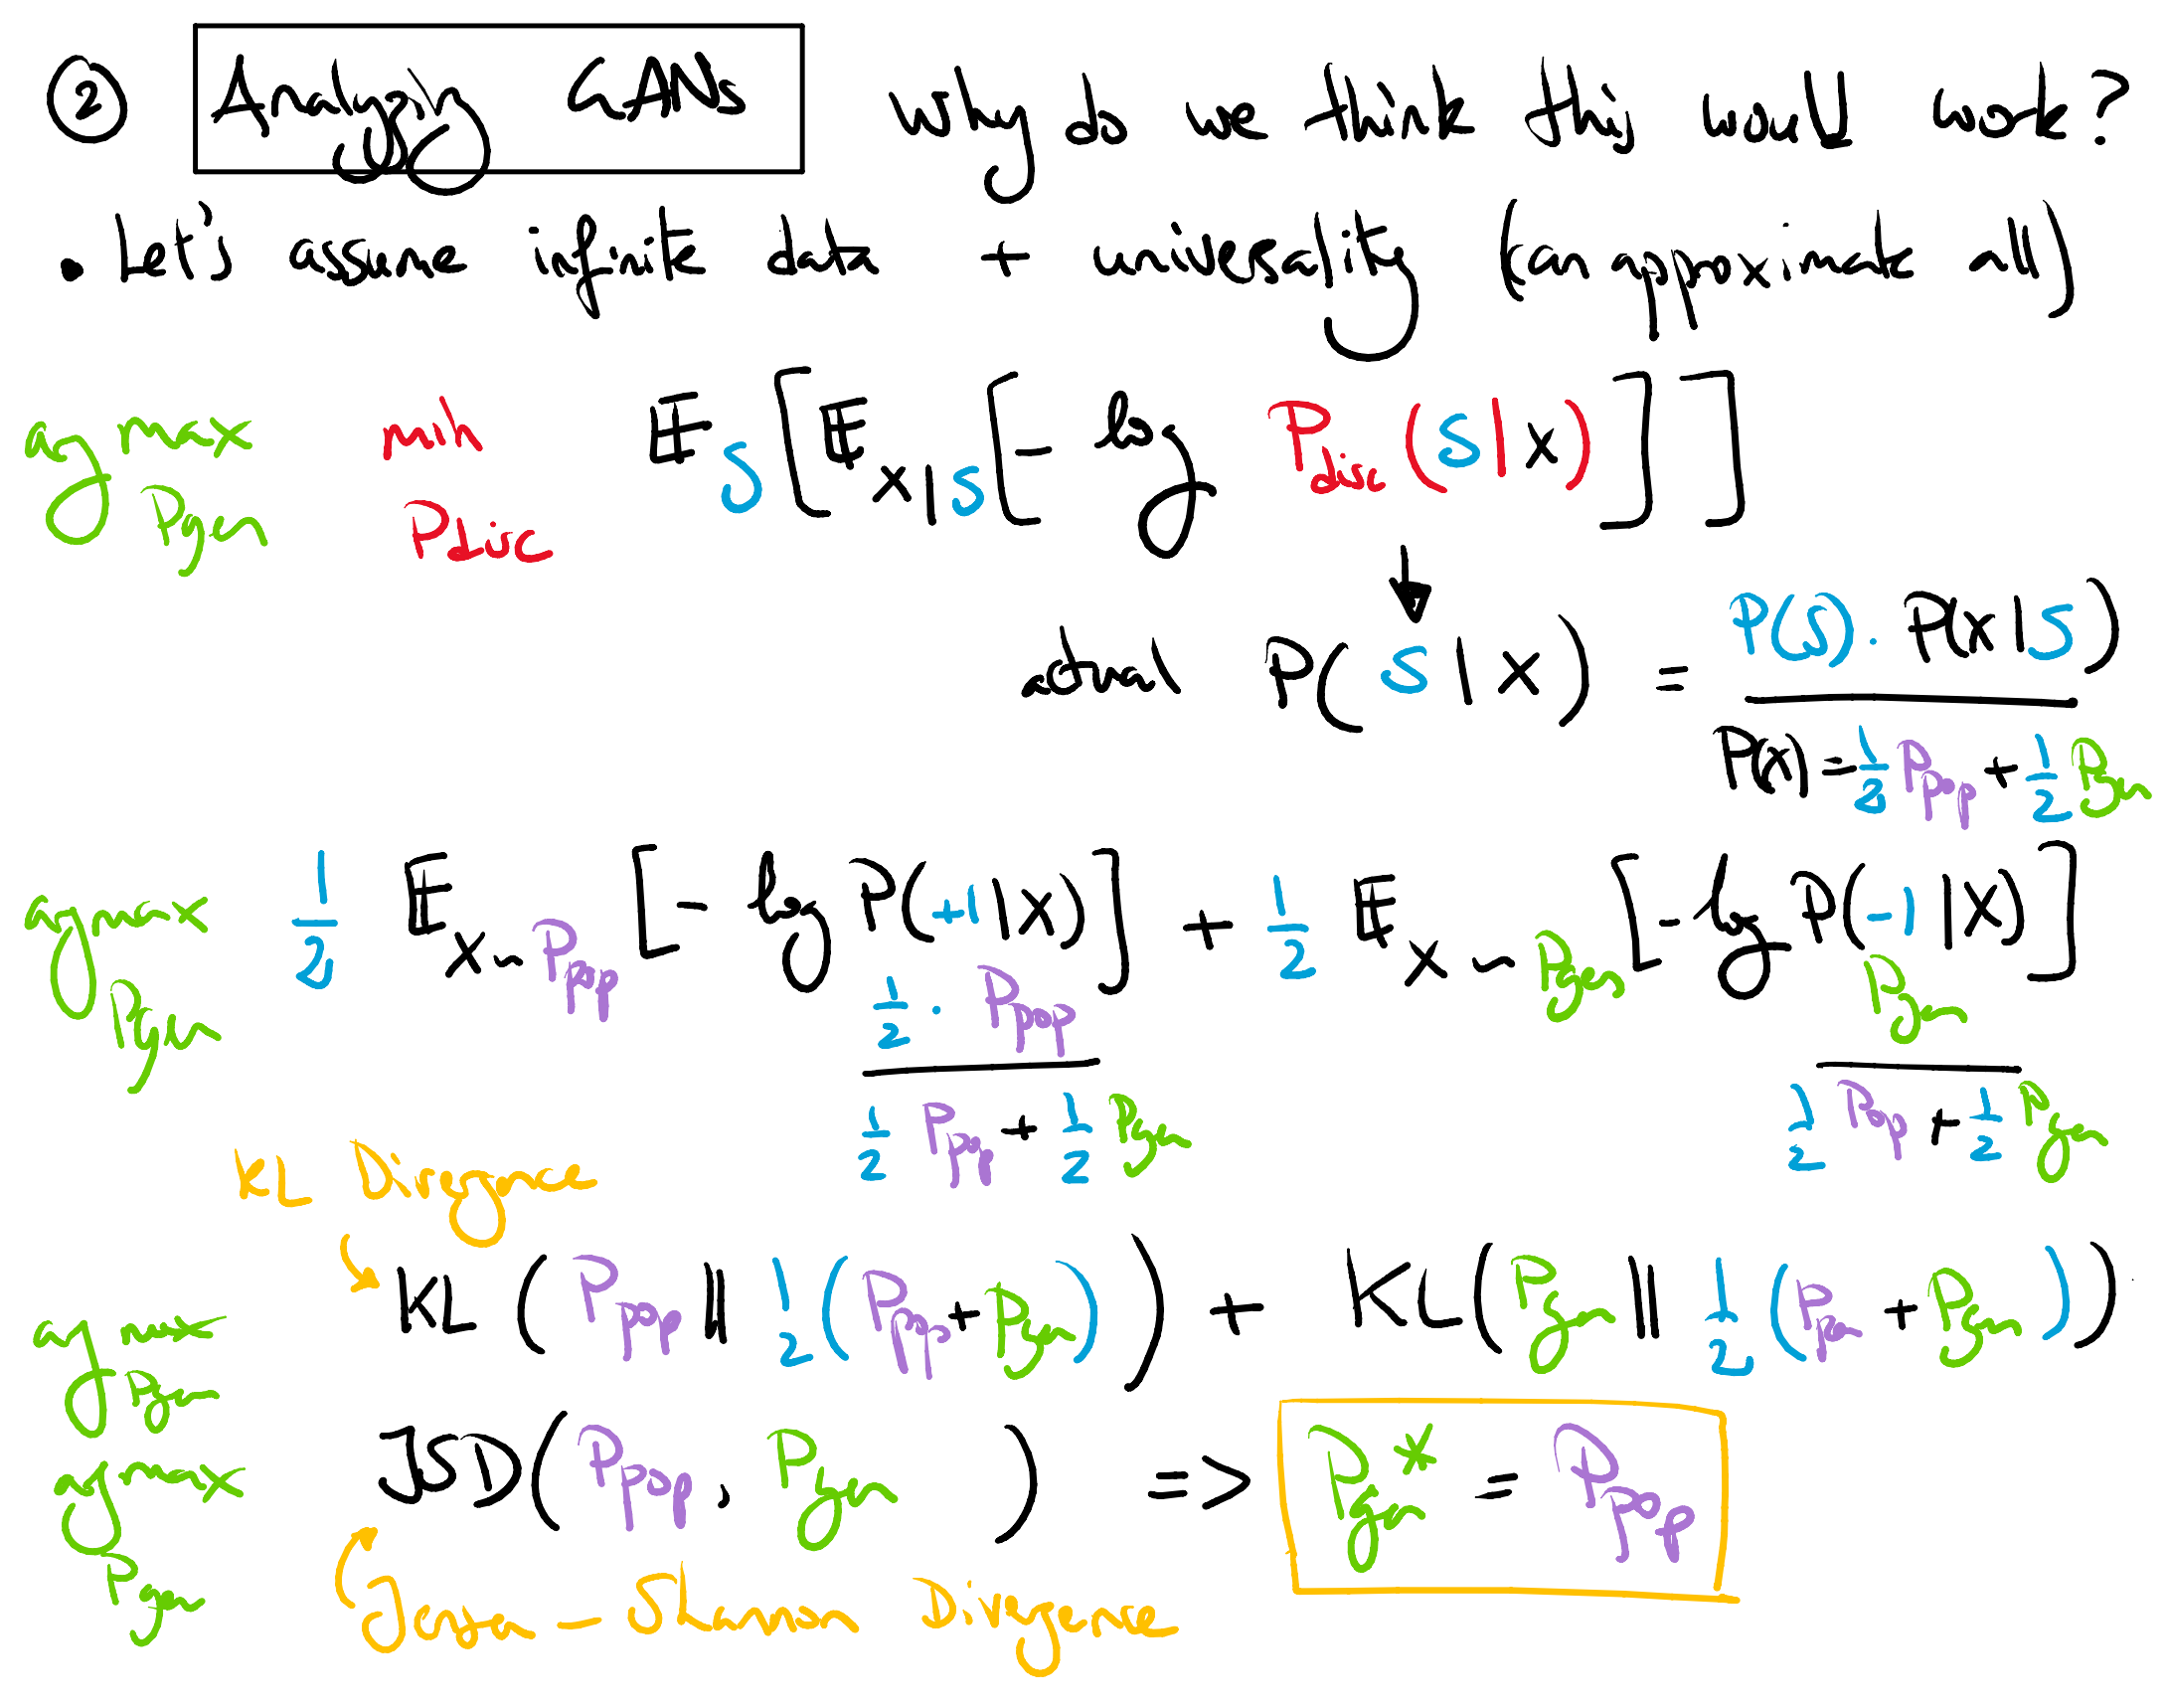 ② Analyzing GANs Why do we think this would work?
• Let's assume infinite data + universality (can approximate all)
argmax P_gen min P_disc E_S [ E_{x|S} [ - log P_disc(S|x) ] ]
actual P(S|x) = P(S) · P(x|S) / P(x) = 1/2 P_pop + 1/2 P_gen
argmax P_gen 1/2 E_{x~P_pop} [ - log P(+1|x) ] + 1/2 E_{x~P_gen} [ - log P(-1|x) ]
1/2 · P_pop / 1/2 P_pop + 1/2 P_gen P_gen / 1/2 P_pop + 1/2 P_gen
KL Divergence
argmax P_gen KL ( P_pop || 1/2 ( P_pop + P_gen ) ) + KL ( P_gen || 1/2 ( P_pop + P_gen ) )
argmax P_gen JSD ( P_pop , P_gen ) => P_gen* = P_pop
Jensen - Shannon Divergence